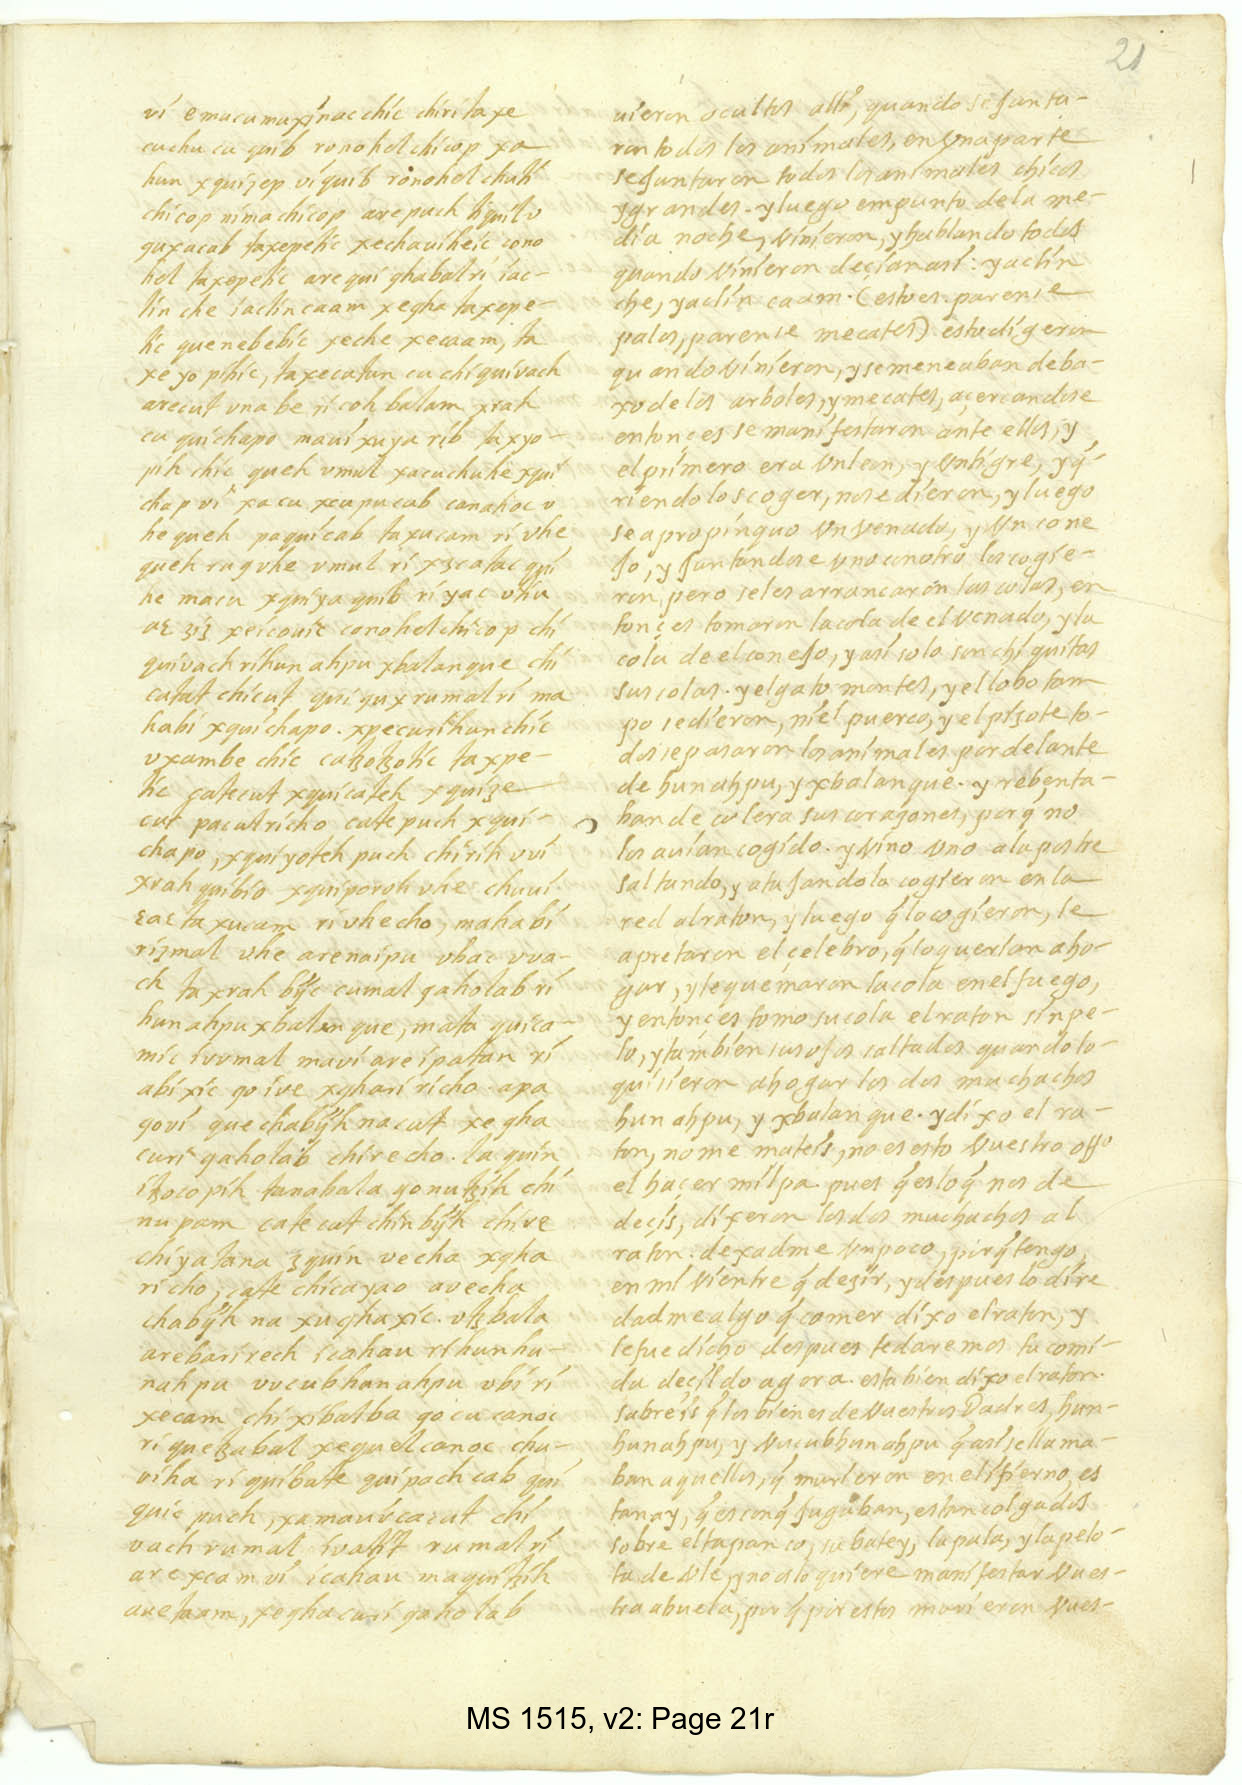 21
vi e macamaxinac chic chiri taxe
cuchu ca quib ronohel chicop xa
hun xquiʒep vi quib ronohel chuti
chicop nima chicop are puch tiquil v
quxacab taxepetic xechauiheic cono
hel taxepetic are qui ghabal ri iac-
lin che iaclin caam xegha taxepe-
tic quenebebic xeche xecaam, ta
xeyopihic, taxecatun cu chiquivach
arecut vnabe ri coh balam xrah
cu quichapo maui xuya rib taxyo-
pih chic queh vmul xacuchuhe xqui
chap vi xacu xcupucab canahoc v
he queh paquicab taxucam ri vhe
queh rug vhe vmul ri xʒcatac qui
he macu xquiya quib ri yac vtiu
aɛ ʒiʒ xeicouic conohel chicop chi
quivach ri hunahpu xbalanque chi
catat chicut qui qux rumal ri ma
habi xquichapo. xpecuri hun chic
vxambe chic catʒotʒotic taxpe-
tic catecut xquicateh xquiʒe
cut pacut ri cho catepuch xqui-
chapo, xquiyoteh puch chirih vvi
xrah quibio xquiporoh vhe chuui
ɛaɛ taxucam ri vhe cho, mahabi
riʒmal vhe arenaipu vbac vva-
ch taxrah biyc cumal qaholab ri
hunahpu xbalanque, mata quica-
mic ivumal maui are ipatan ri
abixic qo ive xghari ri cho. apa
qovi quechabyh nacut xegha
curi qaholab chire cho. la quin
itʒocopih tanabala qo nutʒih chi
nupam catecut chinbyh chive
chiyatana ʒquin vecha xgha
ri cho, cate chicayao avecha
chabyh na xughaxic. vtʒbala
arebari rech icahau ri hunhu-
nahpu vucubhunahpu vbi ri
xecam chi xibalba qo cu canoc
ri queʒabal xequel canoc chu-
viha ri quibate quipachcab qui
quic puch, xamaui cacut chi
vach rumal ivatit rumal ri
are xcam vi icahau maquitʒih
avetaam, xegha curi qaholab
uieron ocultos alli, quando se junta-
ron todos los animales, en Vna parte
se juntaron todos los animales chicos
y grandes. y luego em punto de la me-
dia noche, Vinieron, y hablando todos
quando Vinieron deçian asi: yaclin
che, yaclin caam. (esto es. parense
palos, parense mecates) esto digeron
quando Vinieron, y se meneaban deba-
xo de los arboles, y mecates, açercandose
entonçes se manifestaron ante ellos, y
el primero era Vn leon, y Vn tigre, y q̃-
riendolos coger, no se dieron, y luego
se apropinquo Vn Venado, y Vn cone
jo, y juntandose Vno con otro los cogie-
ron, pero se les arrancaron las colas, en
tonçes tomaron la cola de el Venado, y la
cola de el conejo, y asi solo son chiquitas
sus colas. y el gato montes, y el lobo tam
po se dieron, ni el puerco, y el piʒote to-
dos se pasaron los animales por delante
de hunahpu, y xbalanque. y rebenta-
ban de colera sus coraçones, porq̃ no
los auian cogido. y Vino Vno a la postre
saltando, y atajandolo cogieron en la
red al raton, y luego q̃ lo cogieron, le
apretaron el çelebro, q̃ lo querian aho-
gar, y le quemaron la cola en el fuego,
y entonçes tomo su cola el raton sin pe-
lo, y tambien sus ojos saltados quando lo-
quisieron ahogar los dos muchachos
hunahpu, y xbalanque. y dixo el ra-
ton, no me mateis, no es esto Vuestro offo
el haçer milpa. pues q̃ es lo q̃ nos de
deçis, dixeron los dos muchachos al
raton. dexadme Vn poco, porq̃ tengo,
en mi Vientre q̃ deʒir, y despues lo dire
dadme algo q̃ comer dixo el raton, y
le fue dicho despues te daremos tu comi-
da deçildo agora. esta bien dixo el raton.
sabreis q̃ los bienes de Vuestros Padres, hun-
hunahpu, y Vucubhunahpu q̃ asi se llama-
ban aquellos, q̃ murieron en el ifierno, es
tan ay, q̃ es con q̃ jugaban, estan colgados
sobre el tapanco, su batey, la pala, y la pelo-
ta de Vle, y no os lo quiere manifestar Vues-
tra abuela, por q̃ por estos murieron Vues-
MS 1515, v2: Page 21r